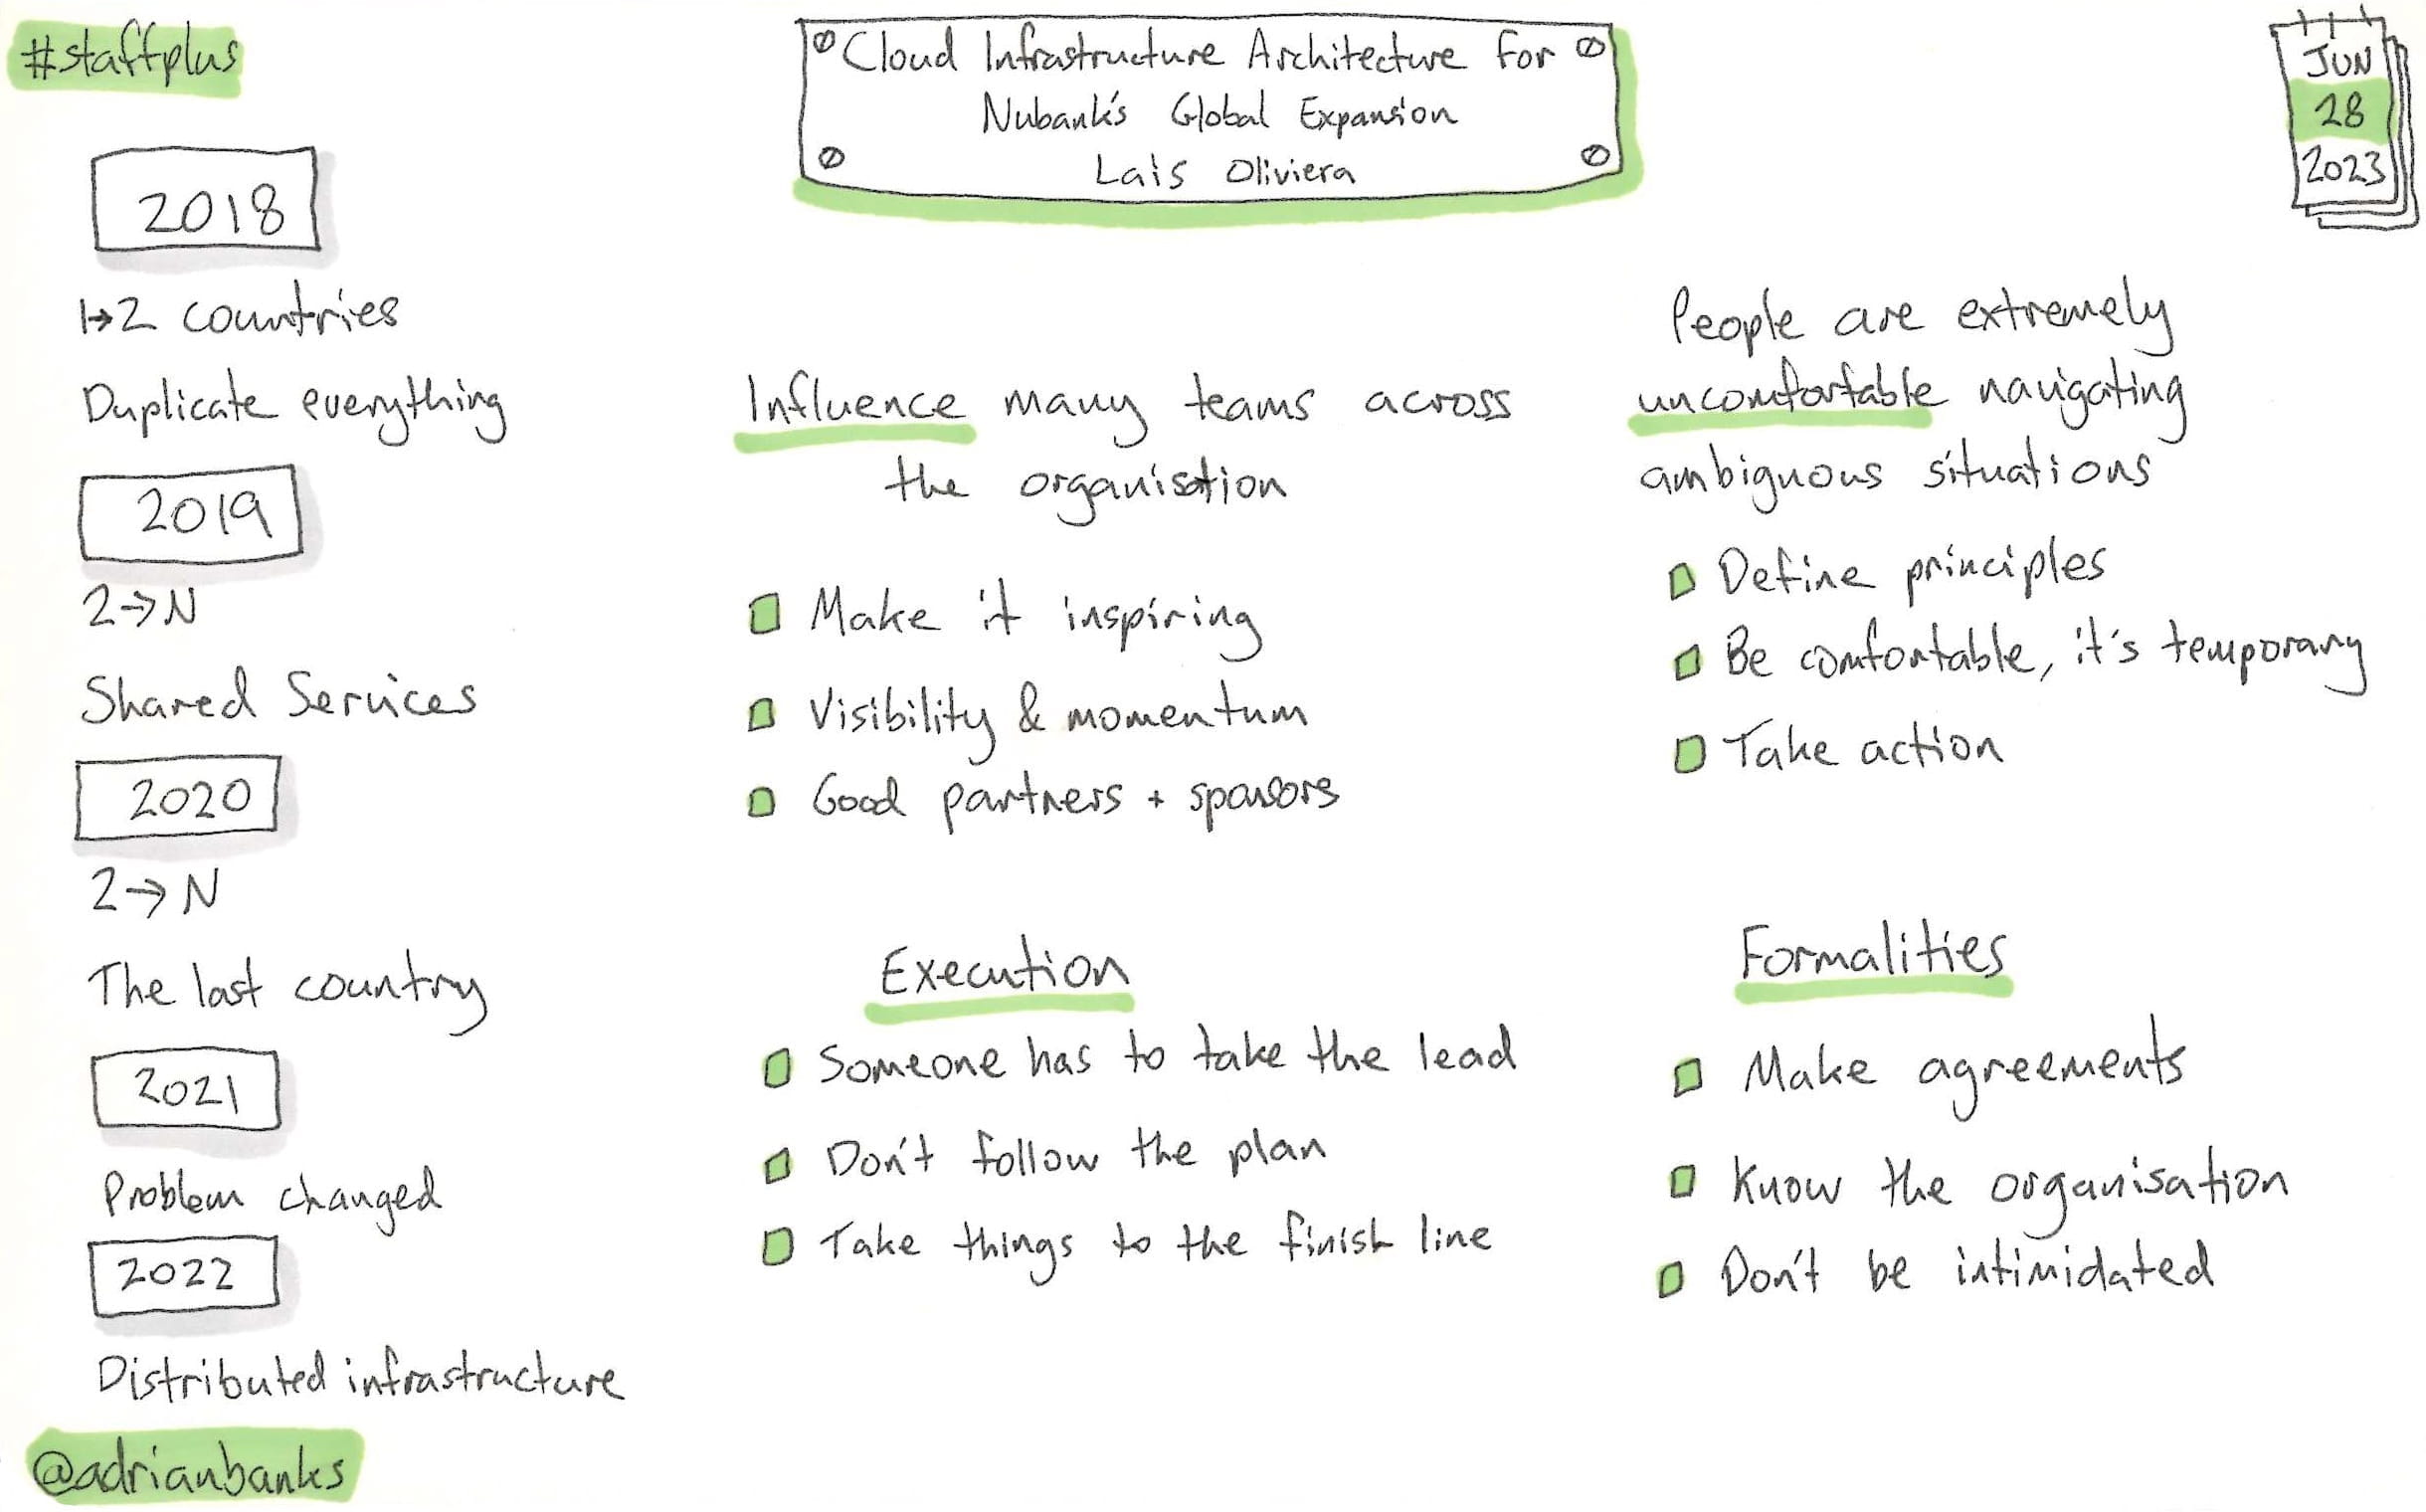 #staffplus
Cloud Infrastructure Architecture for
Nubank's Global Expansion
Lais Oliviera
JUN
28
2023
2018
1→2 countries
Duplicate everything
2019
2→N
Shared Services
2020
2→N
The last country
2021
Problem changed
2022
Distributed infrastructure
@adrianbanks
Influence many teams across
the organisation
Make it inspiring
Visibility & momentum
Good partners + sponsors
Execution
Someone has to take the lead
Don't follow the plan
Take things to the finish line
People are extremely
uncomfortable navigating
ambiguous situations
Define principles
Be comfortable, it's temporary
Take action
Formalities
Make agreements
Know the organisation
Don't be intimidated